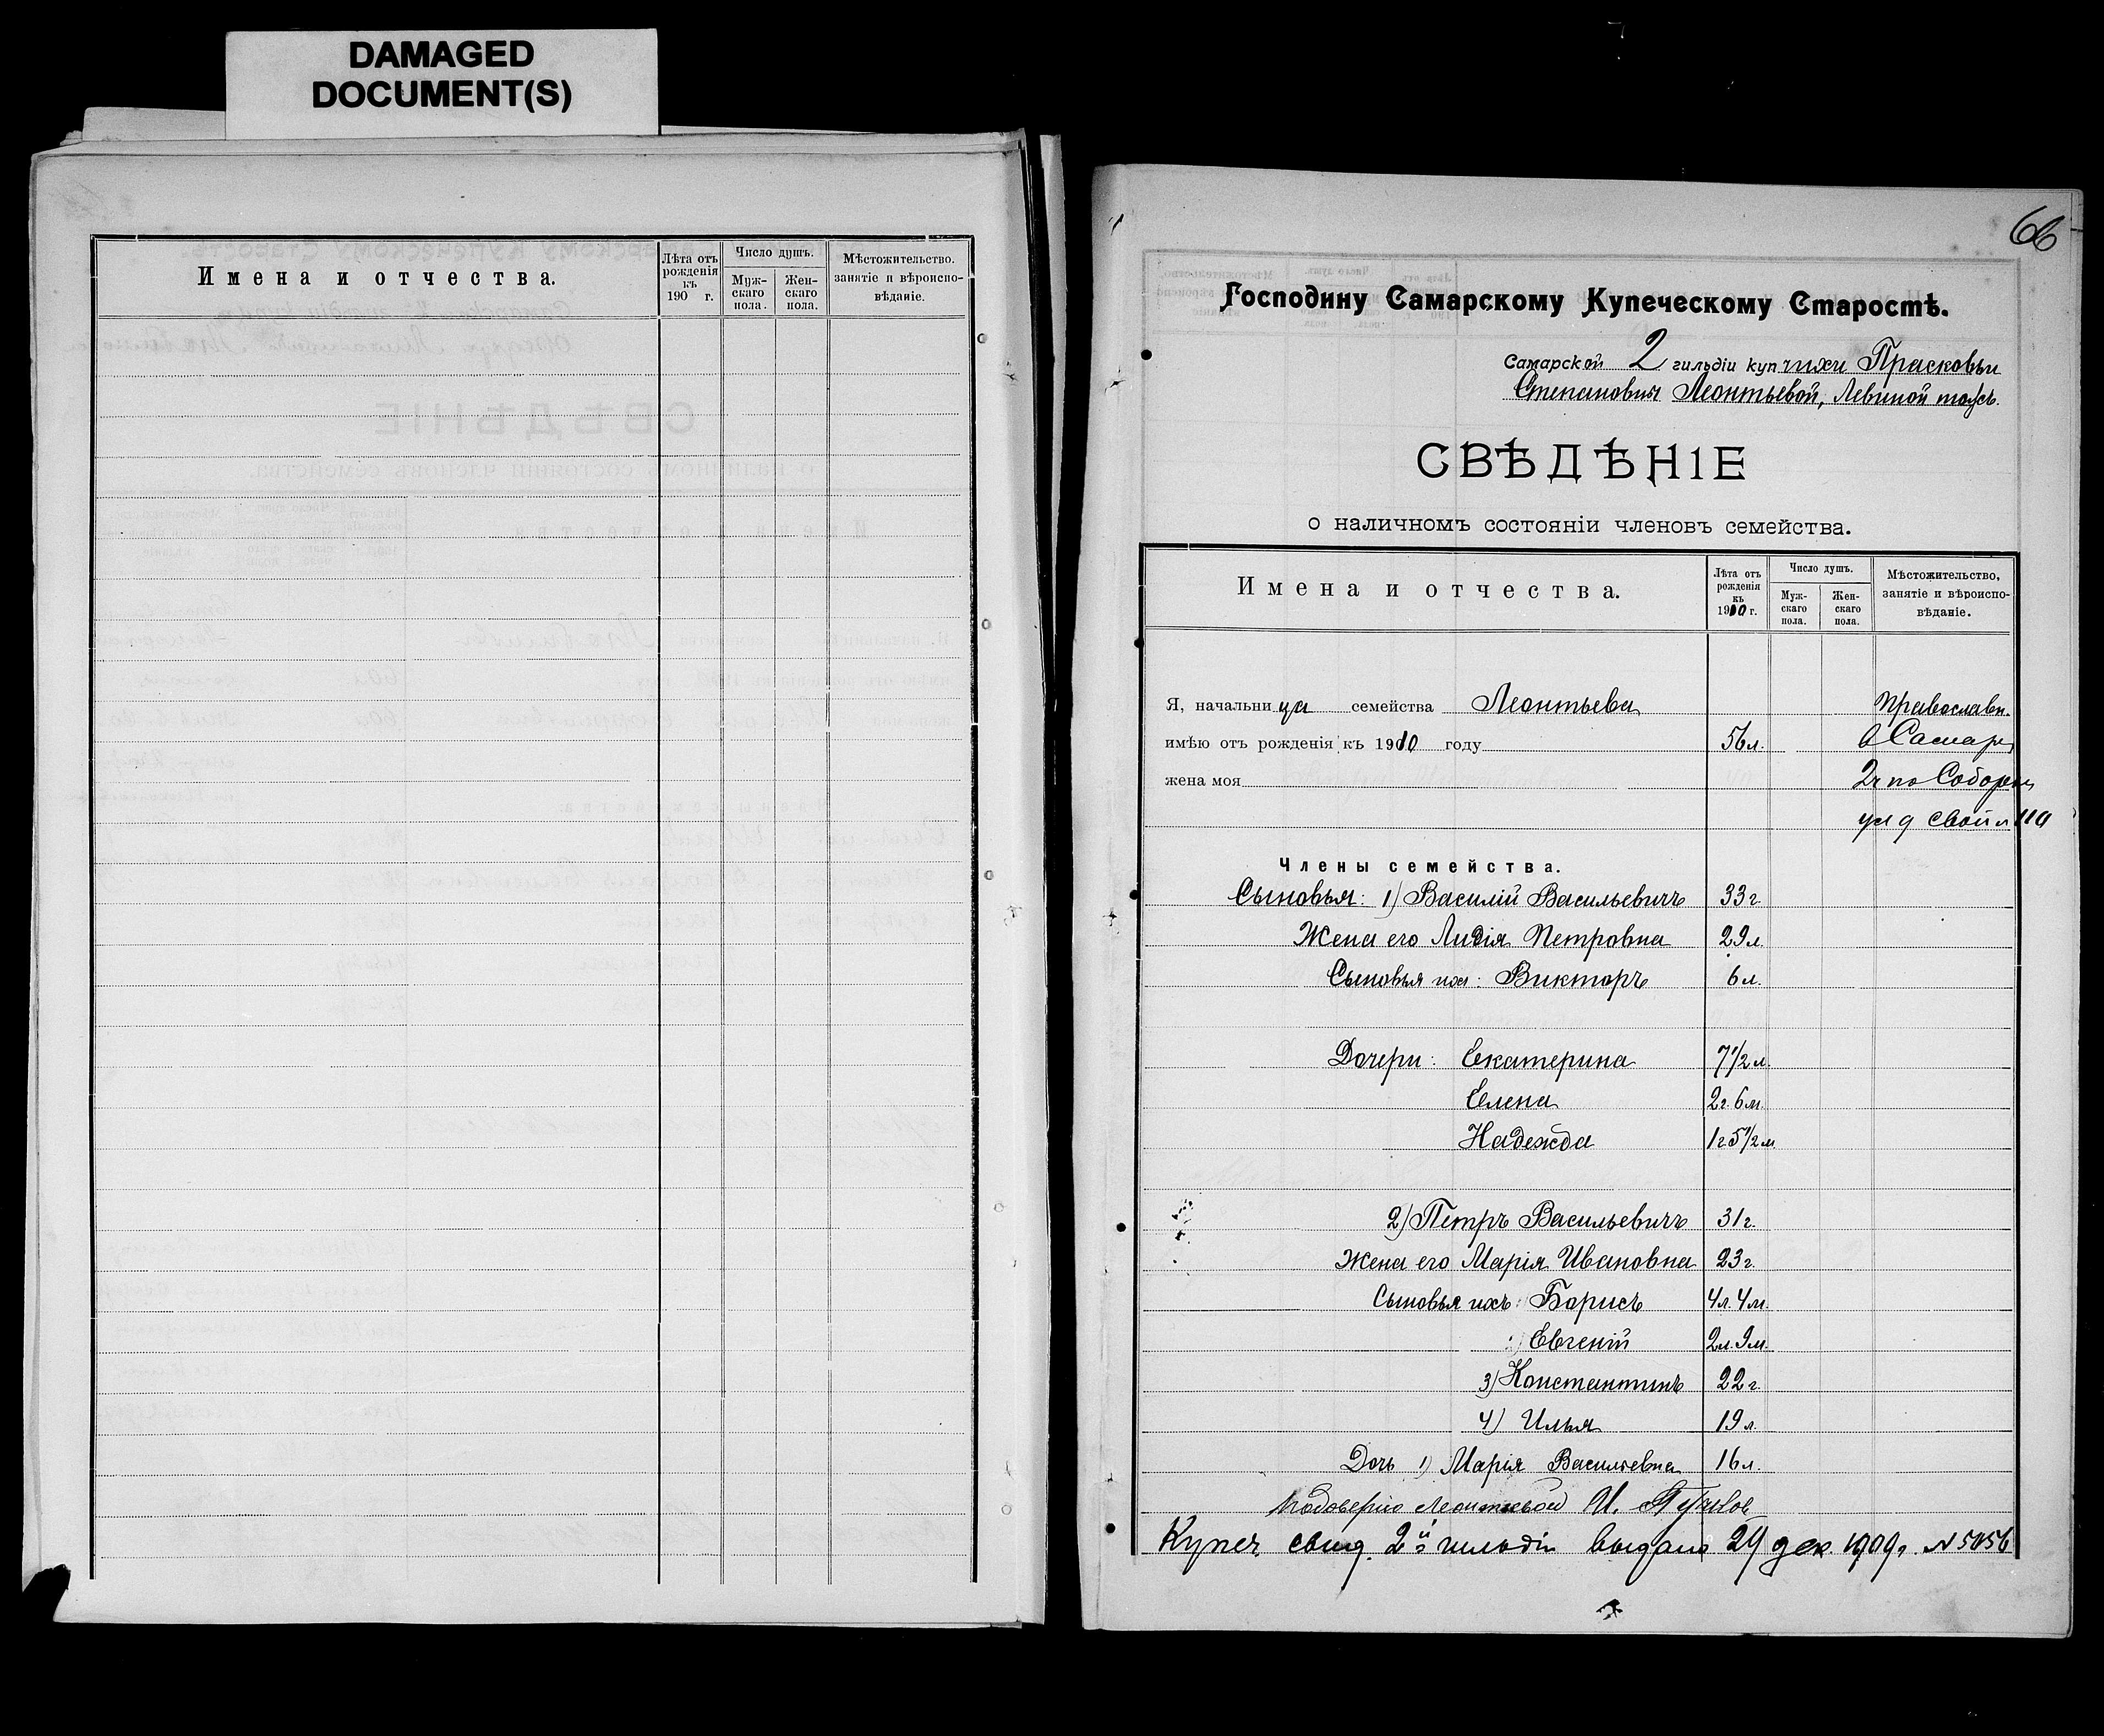 DAMAGED
DOCUMENT(S)
Имена и отчества.
Лѣта отъ
рожденія
къ
190 г.
Число душъ.
Муж-
скаго
пола.
Жен-
скаго
пола.
Мѣстожительство.
занятіе и вѣроиспо-
вѣданіе.
66
Господину Самарскому Купеческому Старостѣ.
Самарской 2 гильдіи купчихи Прасковьи
Степановны Леонтьевой, Левиной тожъ.
СВѢДѢНІЕ
о наличномъ состояніи членовъ семейства.
Имена и отчества.
Лѣта отъ
рожденія
къ
1910 г.
Число душъ.
Муж-
скаго
пола.
Жен-
скаго
пола.
Мѣстожительство,
занятіе и вѣроиспо-
вѣданіе.
Я, начальница семейства Леонтьева Православн.
имѣю отъ рожденія къ 1910 году 56 л. в Самарѣ
жена моя 2ч по Соборн
ул д свой
Члены семейства.
Сыновья: 1) Василій Васильевичъ 33 г.
Жена его Лидія Петровна 29 л.
Сыновья ихъ: Викторъ 6 л.
Дочери: Екатерина 7 1/2 л.
Елена 2 г. 6 м.
Надежда 1 г 5 1/2 м
2) Петръ Васильевичъ 31 г.
Жена его Марія Ивановна 23 г.
Сыновья ихъ: Борисъ 4 л. 4 м.
Евгеній 2 л. 9 м.
3) Константинъ 22 г.
4) Илья 19 л.
Дочь 1) Марія Васильевна 16 л.
По доверію Леонтьевой И.
Купеч. свид. 2й гильдіи выдано 29 дек. 1909 г. №